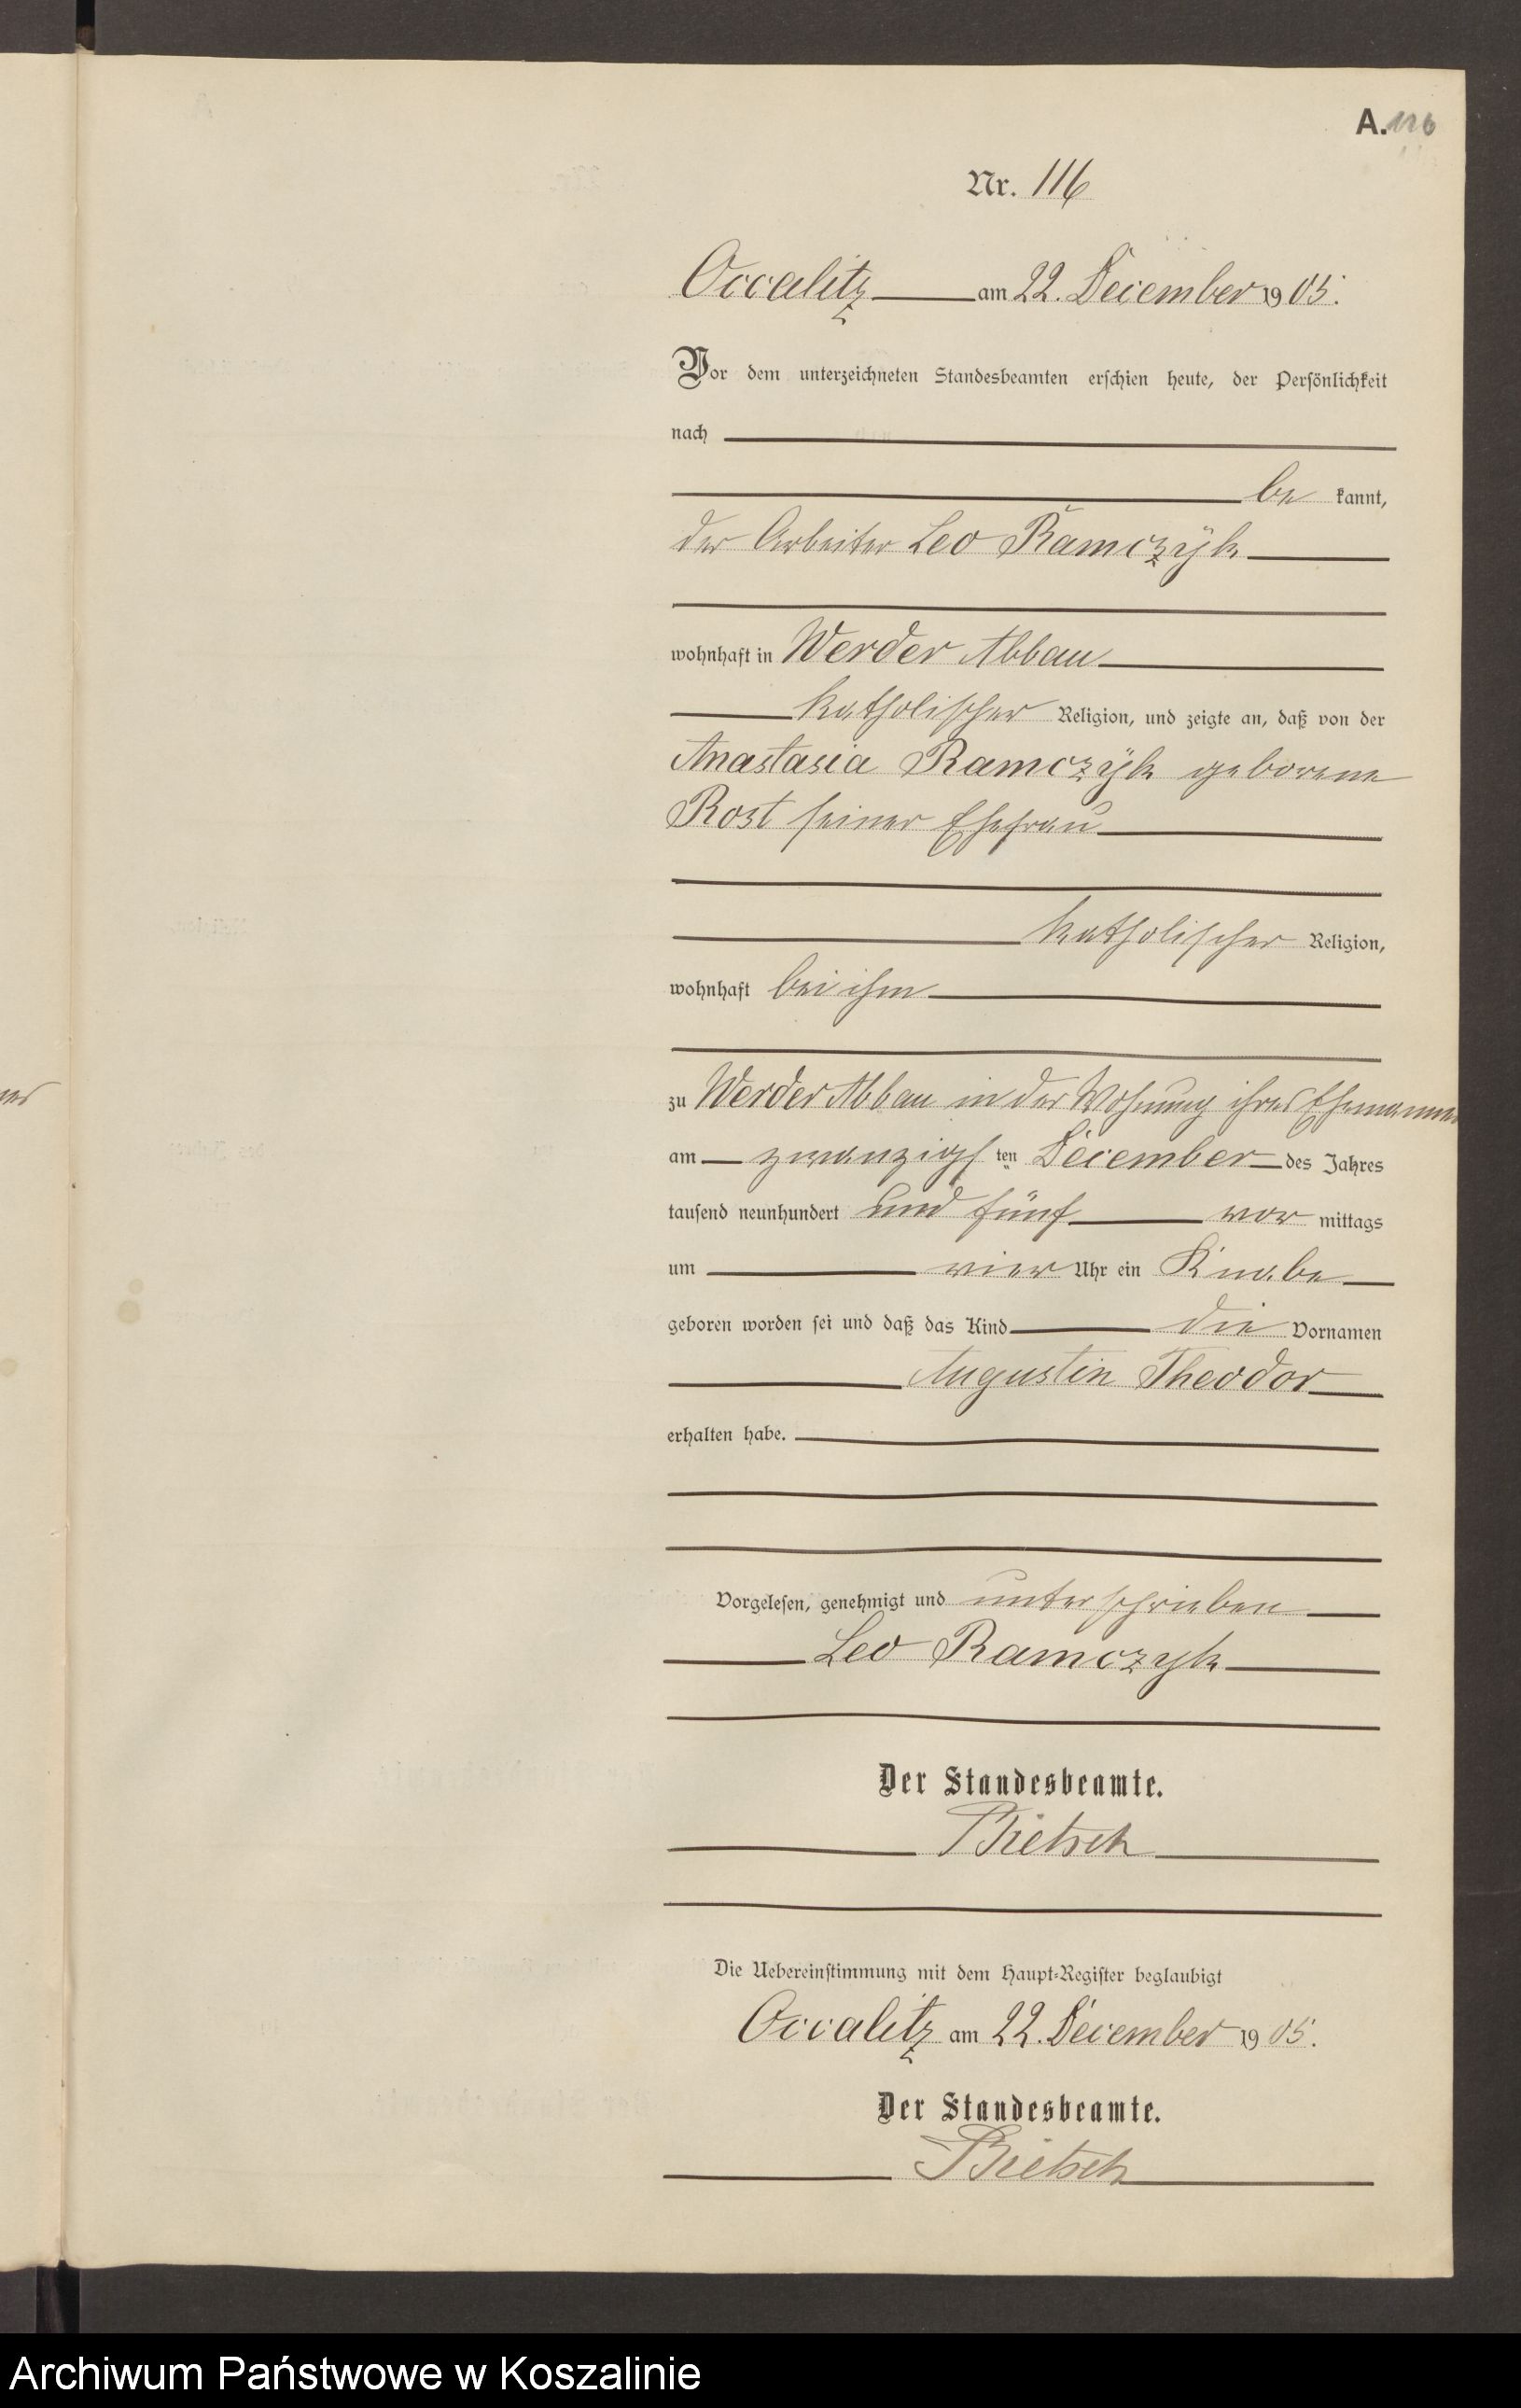 A. 116
Nr. 116
Occalitz am 22. December 1905.
Vor dem unterzeichneten Standesbeamten erschien heute, der Persönlichkeit
nach
be kannt,
der Arbeiter Leo Ramczÿk
wohnhaft in Werder Abbau
katholischer Religion, und zeigte an, daß von der
Anastasia Ramczÿk geborene
Rost seiner Ehefrau
katholischer Religion,
wohnhaft bei ihm
zu Werder Abbau in der Wohnung ihres Ehemannes
am zwanzigsten December des Jahres
tausend neunhundert und fünf vor mittags
um vier Uhr ein Knabe
geboren worden sei und daß das Kind die Vornamen
Augustin Theodor
erhalten habe.
Vorgelesen, genehmigt und unterschrieben
Leo Ramczyk
Der Standesbeamte.
Bietsch
Die Uebereinstimmung mit dem Haupt-Register beglaubigt
Occalitz am 22. December 1905.
Der Standesbeamte.
Bietsch
Archiwum Państwowe w Koszalinie